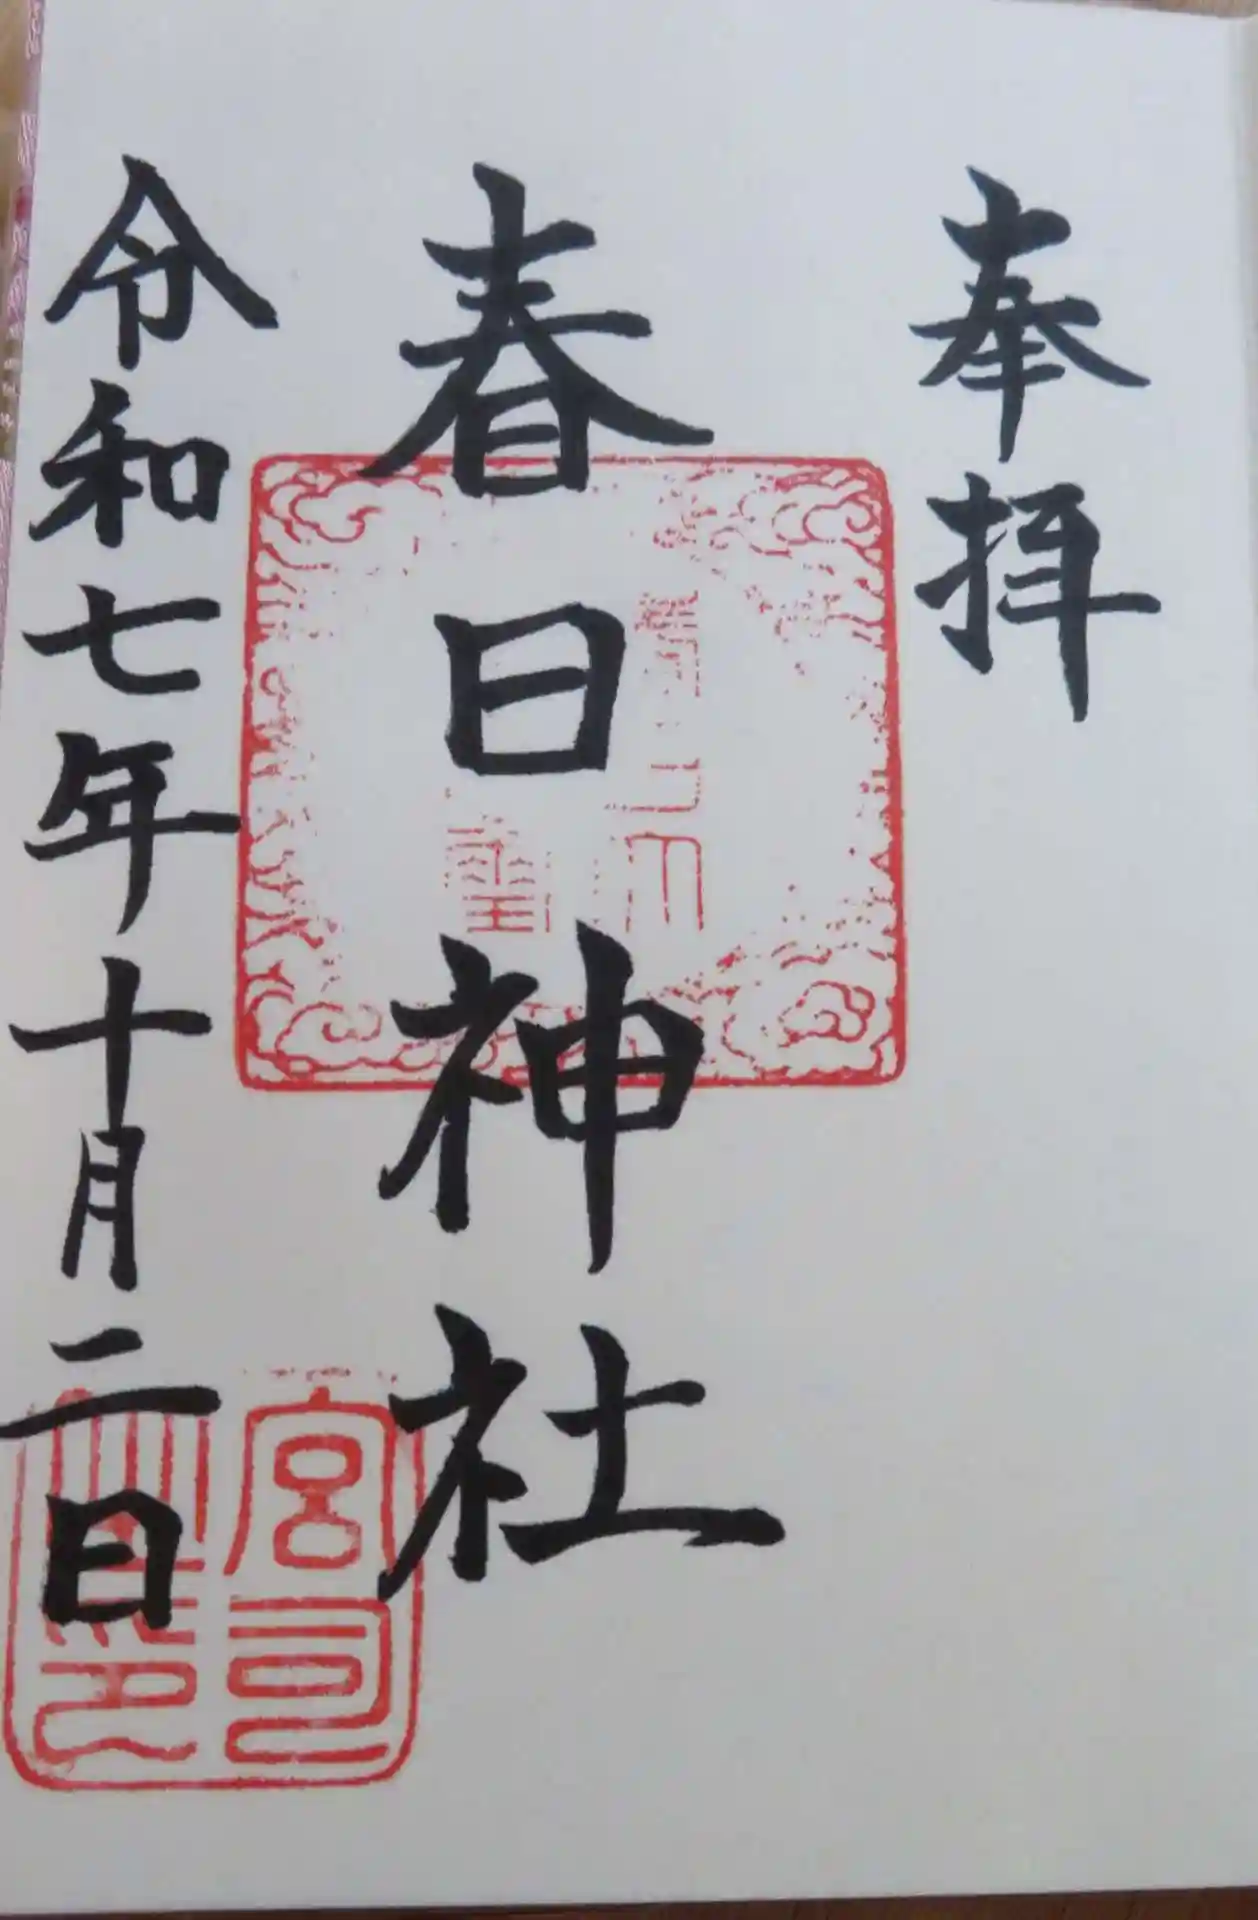 奉拝
春日神社
令和七年十月二日
宮司之印